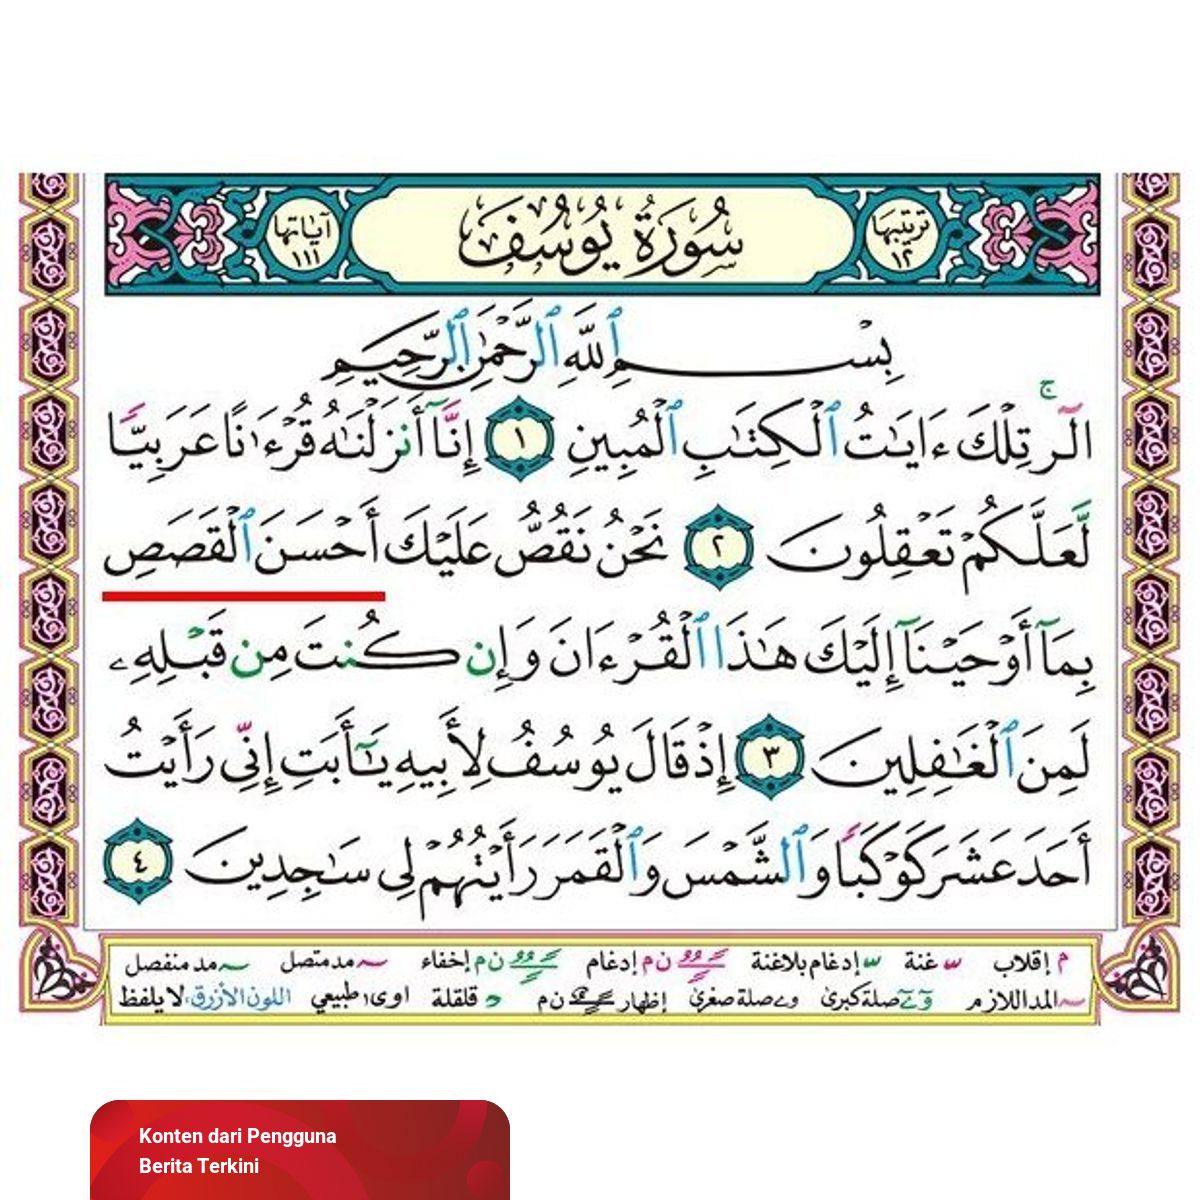 ترتيبها ١٢
سُورَةُ يُوسُفَ
آياتها ١١١
بِسْمِ ٱللَّهِ ٱلرَّحْمَٰنِ ٱلرَّحِيمِ
الٓر تِلْكَ ءَايَٰتُ ٱلْكِتَٰبِ ٱلْمُبِينِ ١ إِنَّآ أَنزَلْنَٰهُ قُرْءَٰنًا عَرَبِيًّا
لَّعَلَّكُمْ تَعْقِلُونَ ٢ نَحْنُ نَقُصُّ عَلَيْكَ أَحْسَنَ ٱلْقَصَصِ
بِمَآ أَوْحَيْنَآ إِلَيْكَ هَٰذَا ٱلْقُرْءَانَ وَإِن كُنتَ مِن قَبْلِهِۦ
لَمِنَ ٱلْغَٰفِلِينَ ٣ إِذْ قَالَ يُوسُفُ لِأَبِيهِ يَٰٓأَبَتِ إِنِّى رَأَيْتُ
أَحَدَ عَشَرَ كَوْكَبًا وَٱلشَّمْسَ وَٱلْقَمَرَ رَأَيْتُهُمْ لِى سَٰجِدِينَ ٤
م إقلاب غنة إدغام بلاغنة ن م إدغام ن م إخفاء مد متصل مد منفصل
المد اللازم صلة كبرى صلة صغرى إظهار ن م قلقلة اوى طبيعي اللون الأزرق، لا يلفظ
Konten dari Pengguna
Berita Terkini